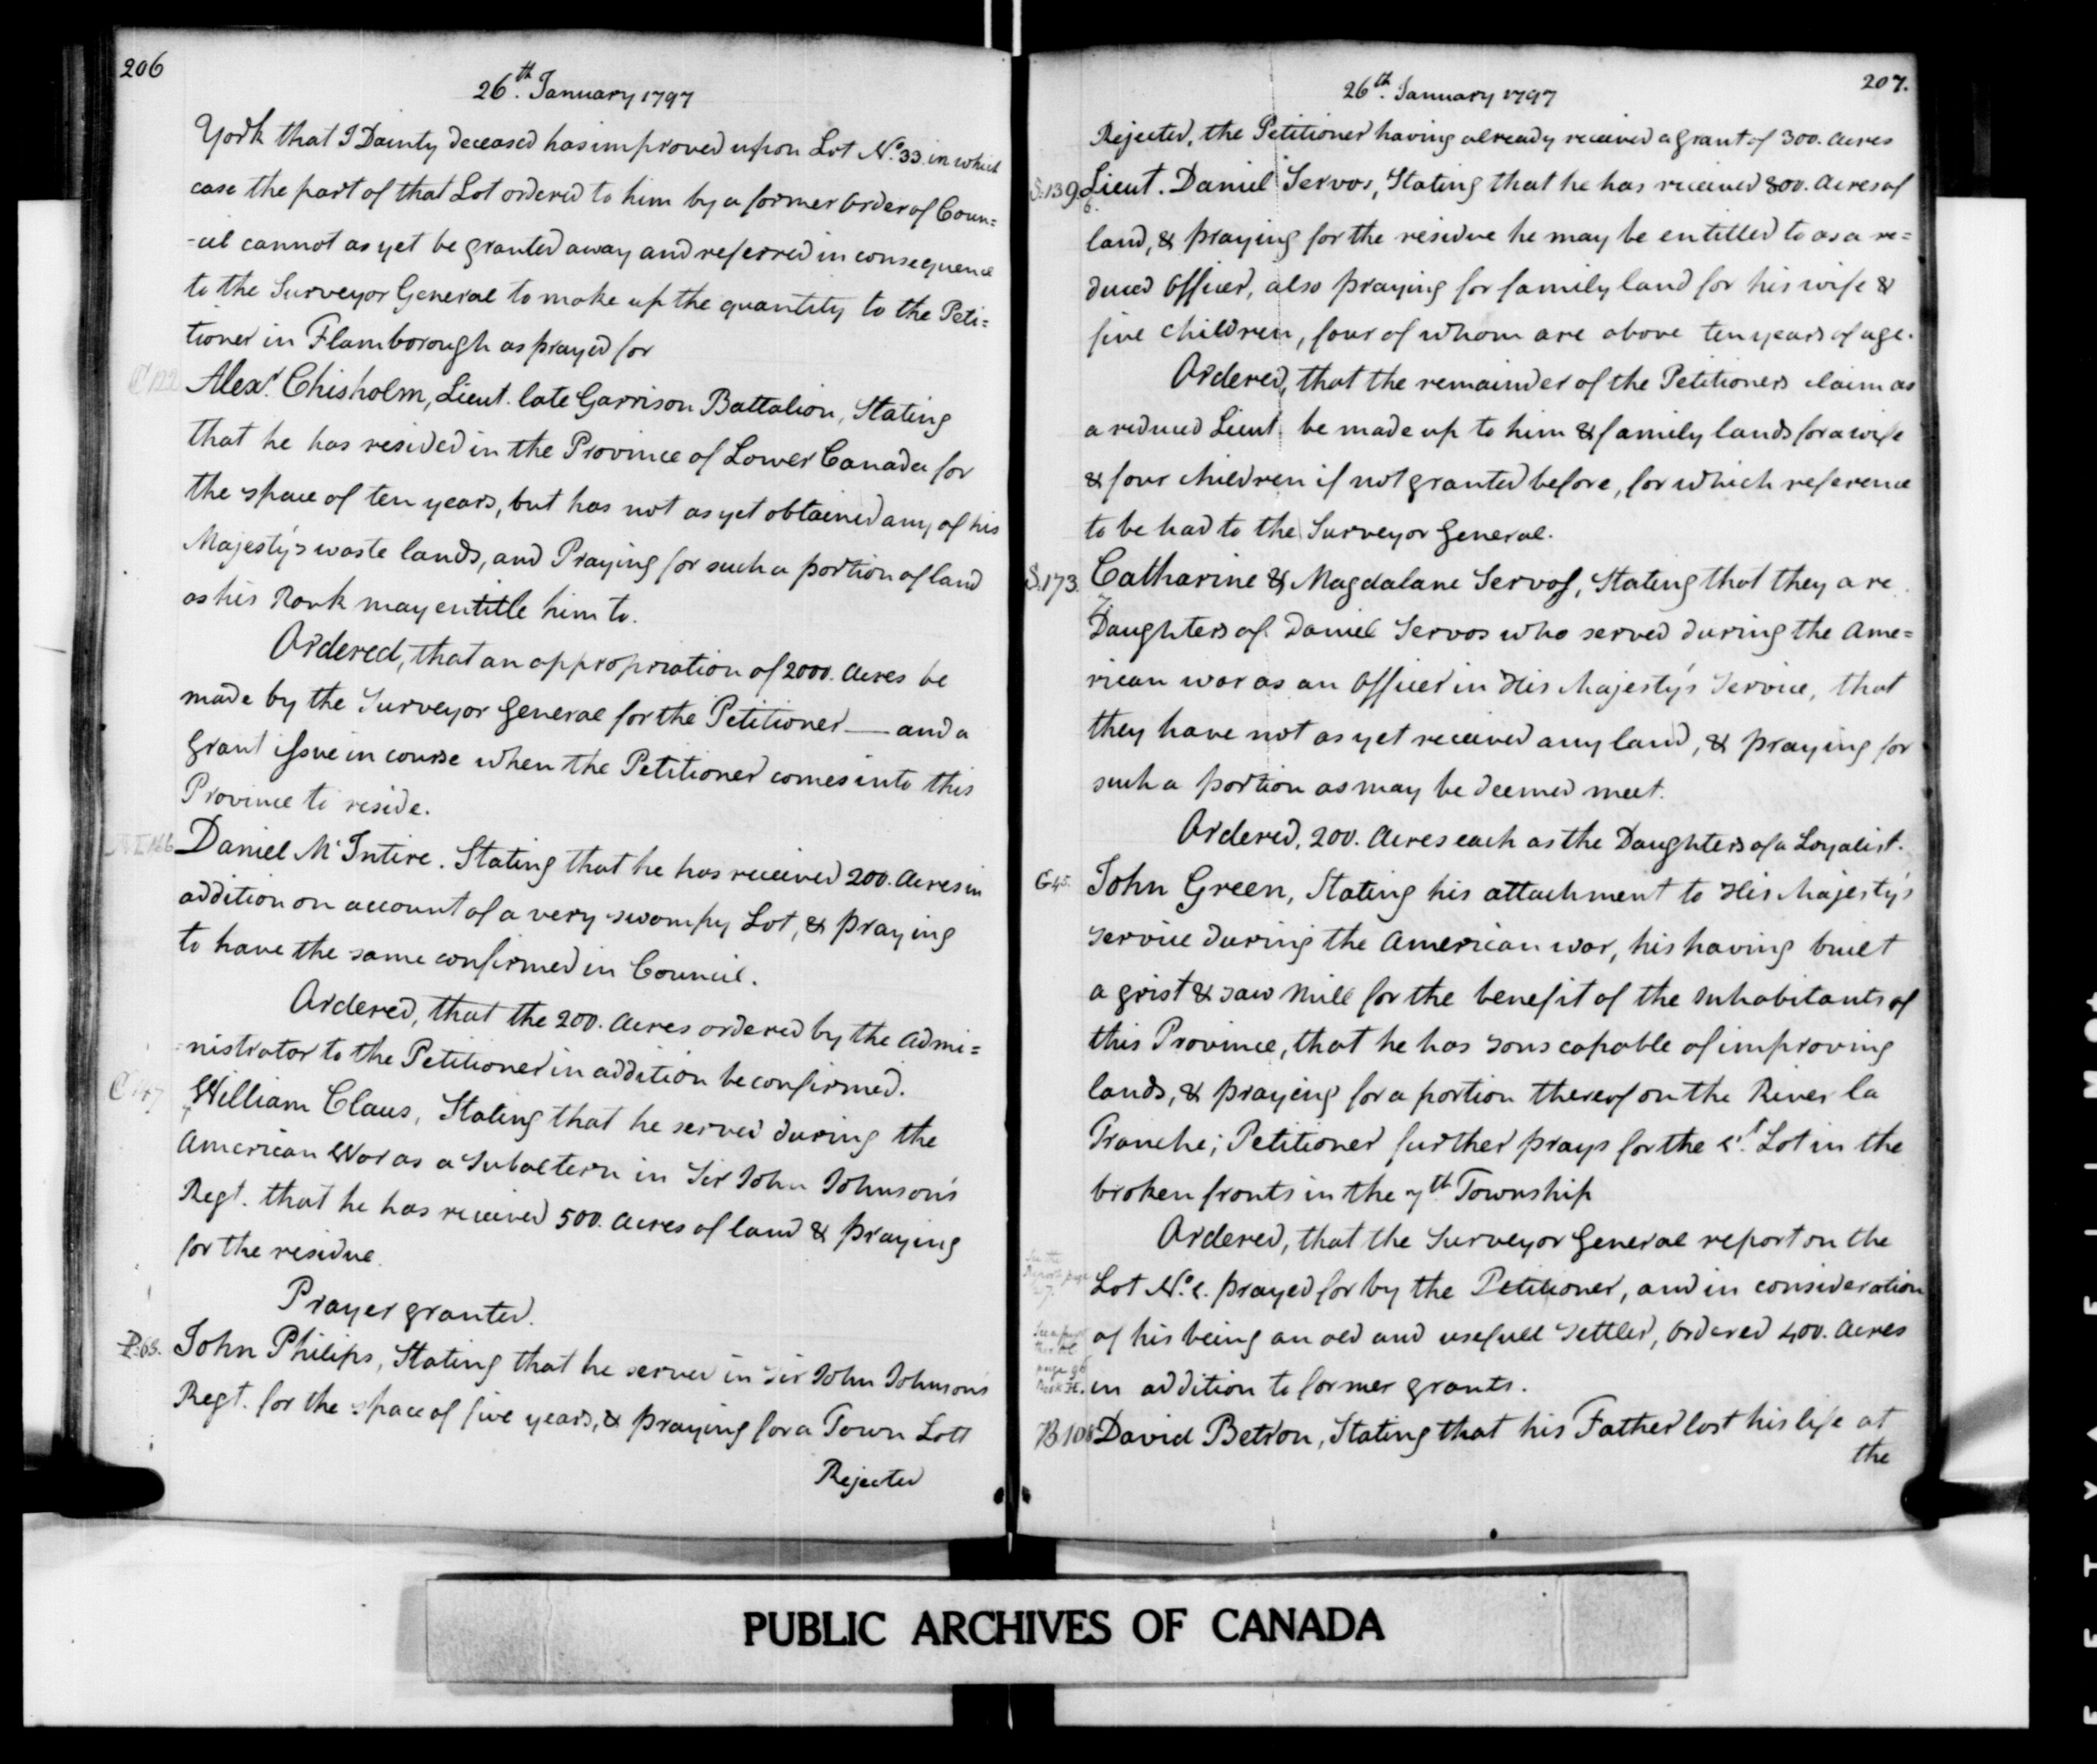 206
26th. January 1797
York that J Dainty deceased has improved upon Lot No. 33 in which
case the part of that Lot ordered to him by a former Order of Coun=
=cil cannot as yet be granted away and referred in consequence
to the Surveyor General to make up the quantity to the Peti=
tioner in Flamborough as prayed for
C 122 Alexr. Chisholm, Lieut. late Garrison Battalion, Stating
that he has resided in the Province of Lower Canada for
the space of ten years, but has not as yet obtained any of his
Majesty's waste lands, and Praying for such a portion of land
as his Rank may entitle him to.
Ordered, that an appropriation of 2000. Acres be
made by the Surveyor General for the Petitioner — and a
Grant issue in course when the Petitioner comes into this
Province to reside.
Daniel McIntire. Stating that he has received 200. Acres in
addition on account of a very swampy Lot, & praying
to have the same confirmed in Council.
Ordered, that the 200. Acres ordered by the Admi=
=nistrator to the Petitioner in addition be confirmed.
William Claus, Stating that he served during the
American War as a Subaltern in Sir John Johnson's
Regt. that he has received 500. Acres of land & praying
for the residue.
Prayer granted.
P. 68. John Philips, Stating that he served in Sir John Johnson's
Regt. for the space of five years, & praying for a Town Lott
Rejected
207.
26th. January 1797
Rejected, the Petitioner having already received a grant of 300. Acres
S. 139. Lieut. Daniel Servos, Stating that he has received 800. Acres of
land, & praying for the residue he may be entitled to as a re=
duced Officer, also praying for family land for his wife &
five children, four of whom are above ten years of age.
Ordered, that the remainder of the Petitioners claim as
a reduced Lieut. be made up to him & family lands for a wife
& four children if not granted before, for which reference
to be had to the Surveyor General.
S. 173. Catharine & Magdalane Servos, Stating that they are
Daughters of Daniel Servos who served during the Ame=
rican war as an Officer in His Majesty's Service, that
they have not as yet received any land, & praying for
such a portion as may be deemed meet.
Ordered, 200. Acres each as the Daughters of a Loyalist.
G 45. John Green, Stating his attachment to His Majesty's
service during the American war, his having built
a grist & saw mill for the benefit of the Inhabitants of
this Province, that he has sons capable of improving
lands, & praying for a portion thereof on the River la
Tranche; Petitioner further prays for the Lot in the
broken fronts in the 7th Township
Ordered, that the Surveyor General report on the
Lot No. prayed for by the Petitioner, and in consideration
of his being an old and usefull Settler, Ordered 400. Acres
in addition to former grants.
B 106 David Betron, Stating that his Father lost his life at
the
PUBLIC ARCHIVES OF CANADA